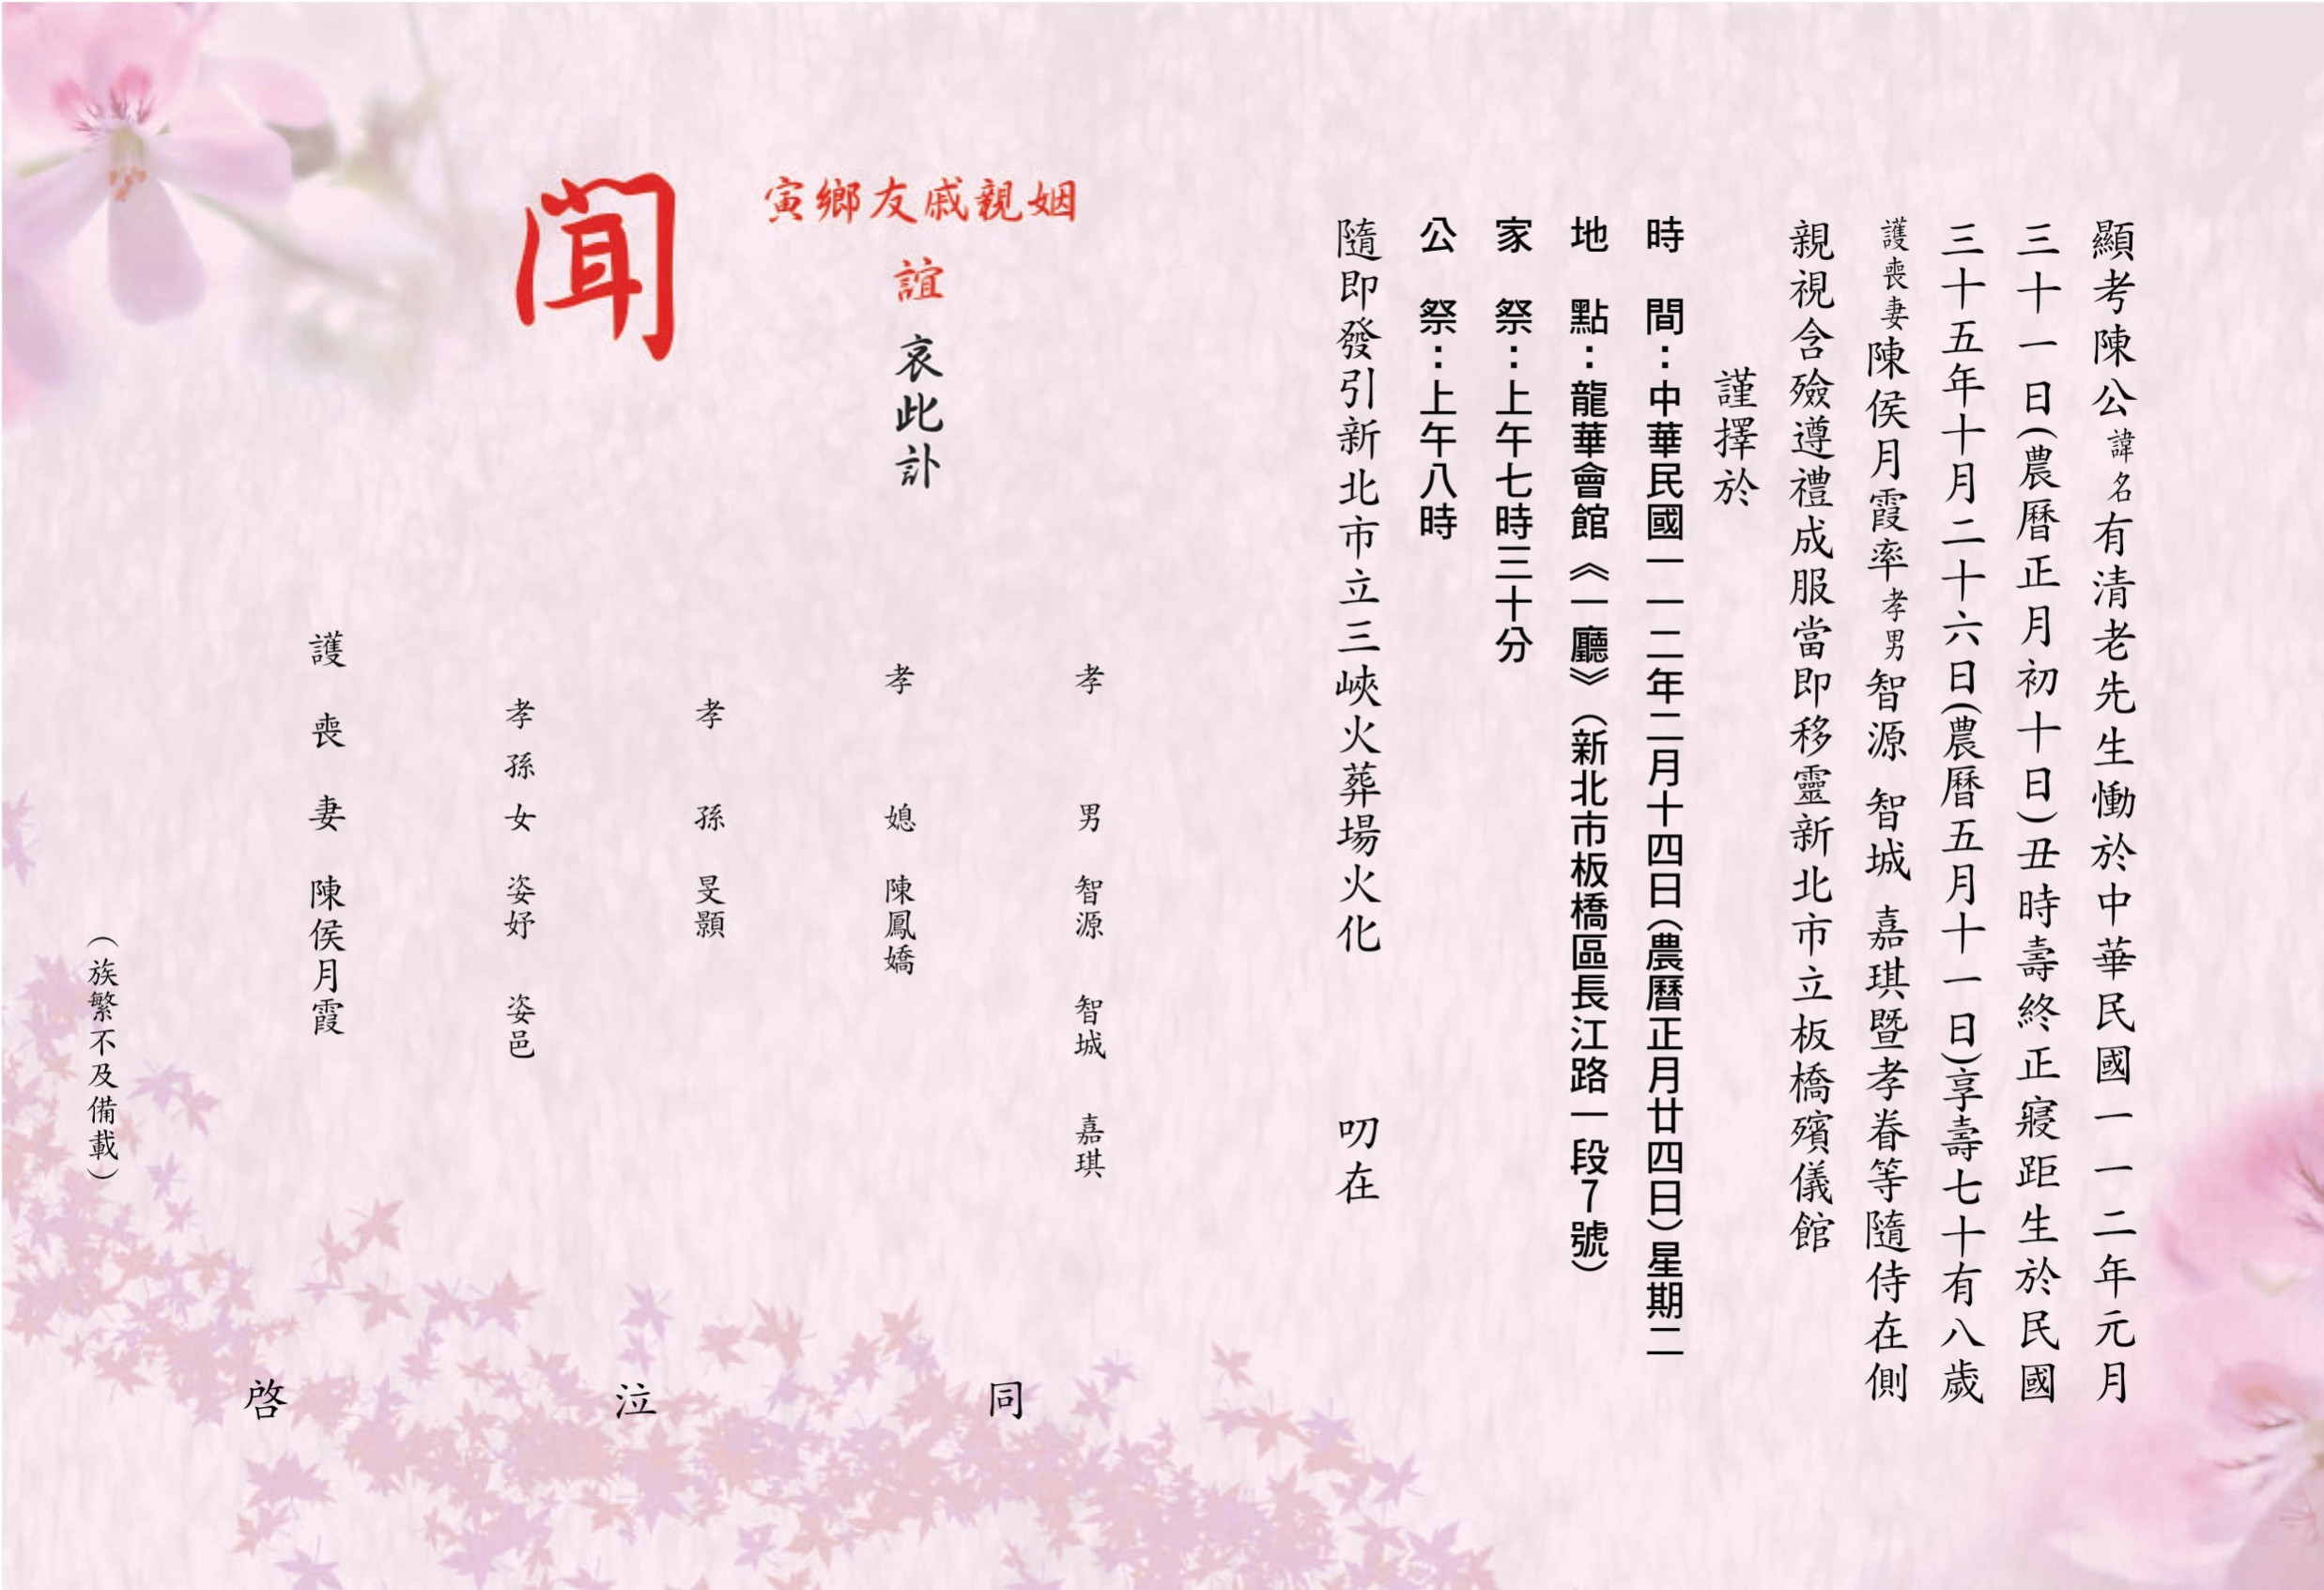 顯考陳公諱名有清老先生慟於中華民國一一二年元月
三十一日(農曆正月初十日)丑時壽終正寢距生於民國
三十五年十月二十六日(農曆五月十一日)享壽七十有八歲
護喪妻陳侯月霞率孝男智源 智城 嘉琪暨孝眷等隨侍在側
親視含殮遵禮成服當即移靈新北市立板橋殯儀館
謹擇於
時 間：中華民國一一二年二月十四日(農曆正月廿四日)星期二
地 點：龍華會館《一廳》(新北市板橋區長江路一段7號)
家 祭：上午七時三十分
公 祭：上午八時
隨即發引新北市立三峽火葬場火化 叨在
姻親戚友鄉寅
誼 哀此訃
聞
孝 男 智源 智城 嘉琪
孝 媳 陳鳳嬌
孝 孫 旻顥
孝孫女 姿妤 姿邑
護喪妻 陳侯月霞
同 泣 啓
(族繁不及備載)